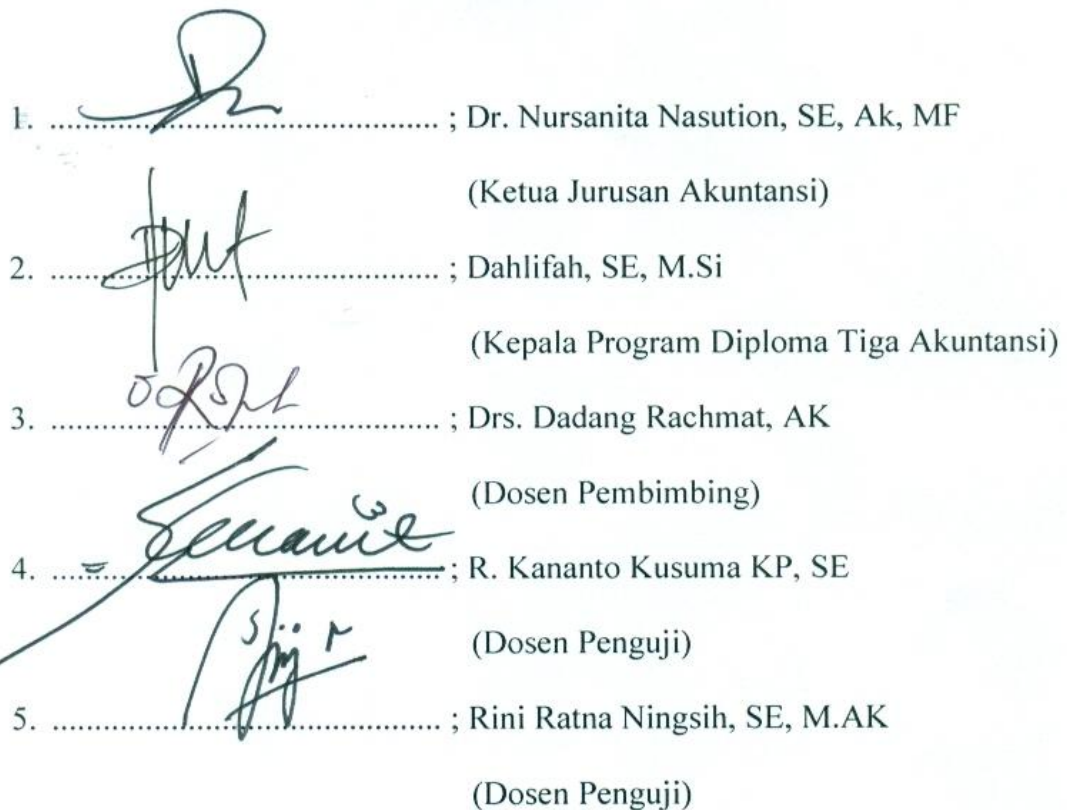 1. ........................................ ; Dr. Nursanita Nasution, SE, Ak, MF
(Ketua Jurusan Akuntansi)
2. ........................................ ; Dahlifah, SE, M.Si
(Kepala Program Diploma Tiga Akuntansi)
3. ........................................ ; Drs. Dadang Rachmat, AK
(Dosen Pembimbing)
4. ........................................ ; R. Kananto Kusuma KP, SE
(Dosen Penguji)
5. ........................................ ; Rini Ratna Ningsih, SE, M.AK
(Dosen Penguji)